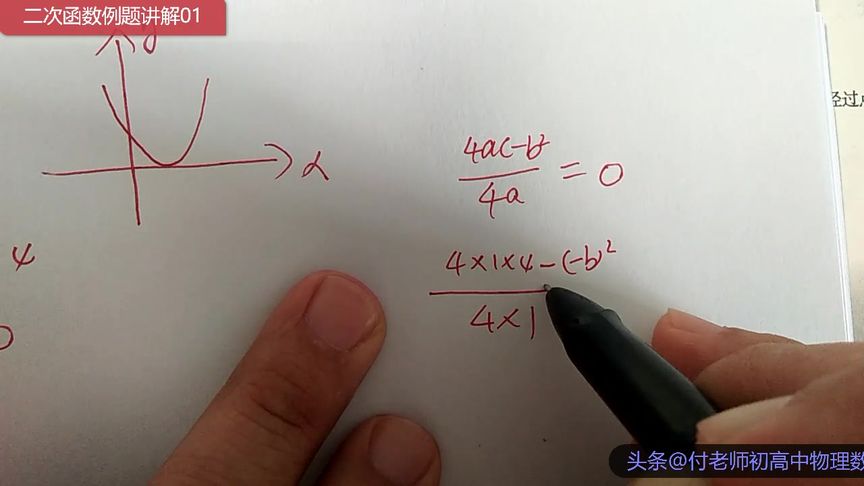 二次函数例题讲解01
y
x
经过点
4ac-b²
4a
= 0
4
4×1×4-(-b)²
4×1
0
头条@付老师初高中物理数